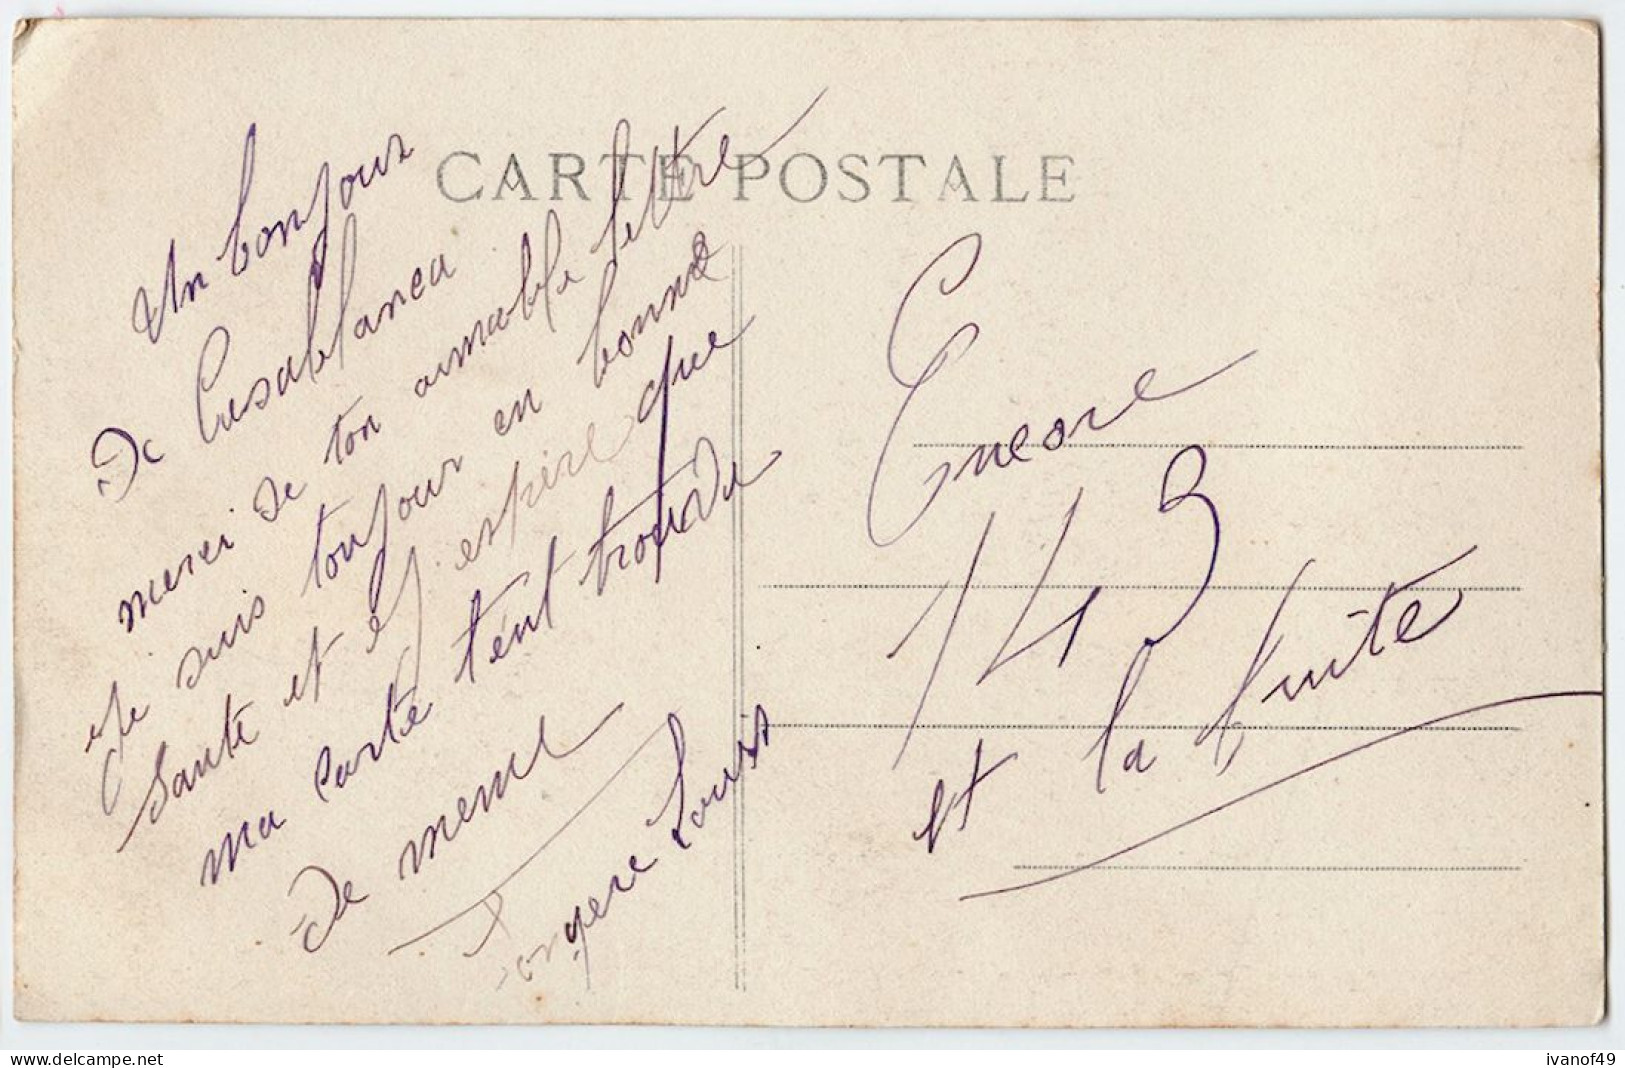 CARTE POSTALE
Un bonjour
De Casablanca
merci De ton aimable lettre
Je suis toujour en bonne
Santé et J espère que
ma carte tent trouvde
De meme
Louis
Encore
143
et la fuite
ivanof49